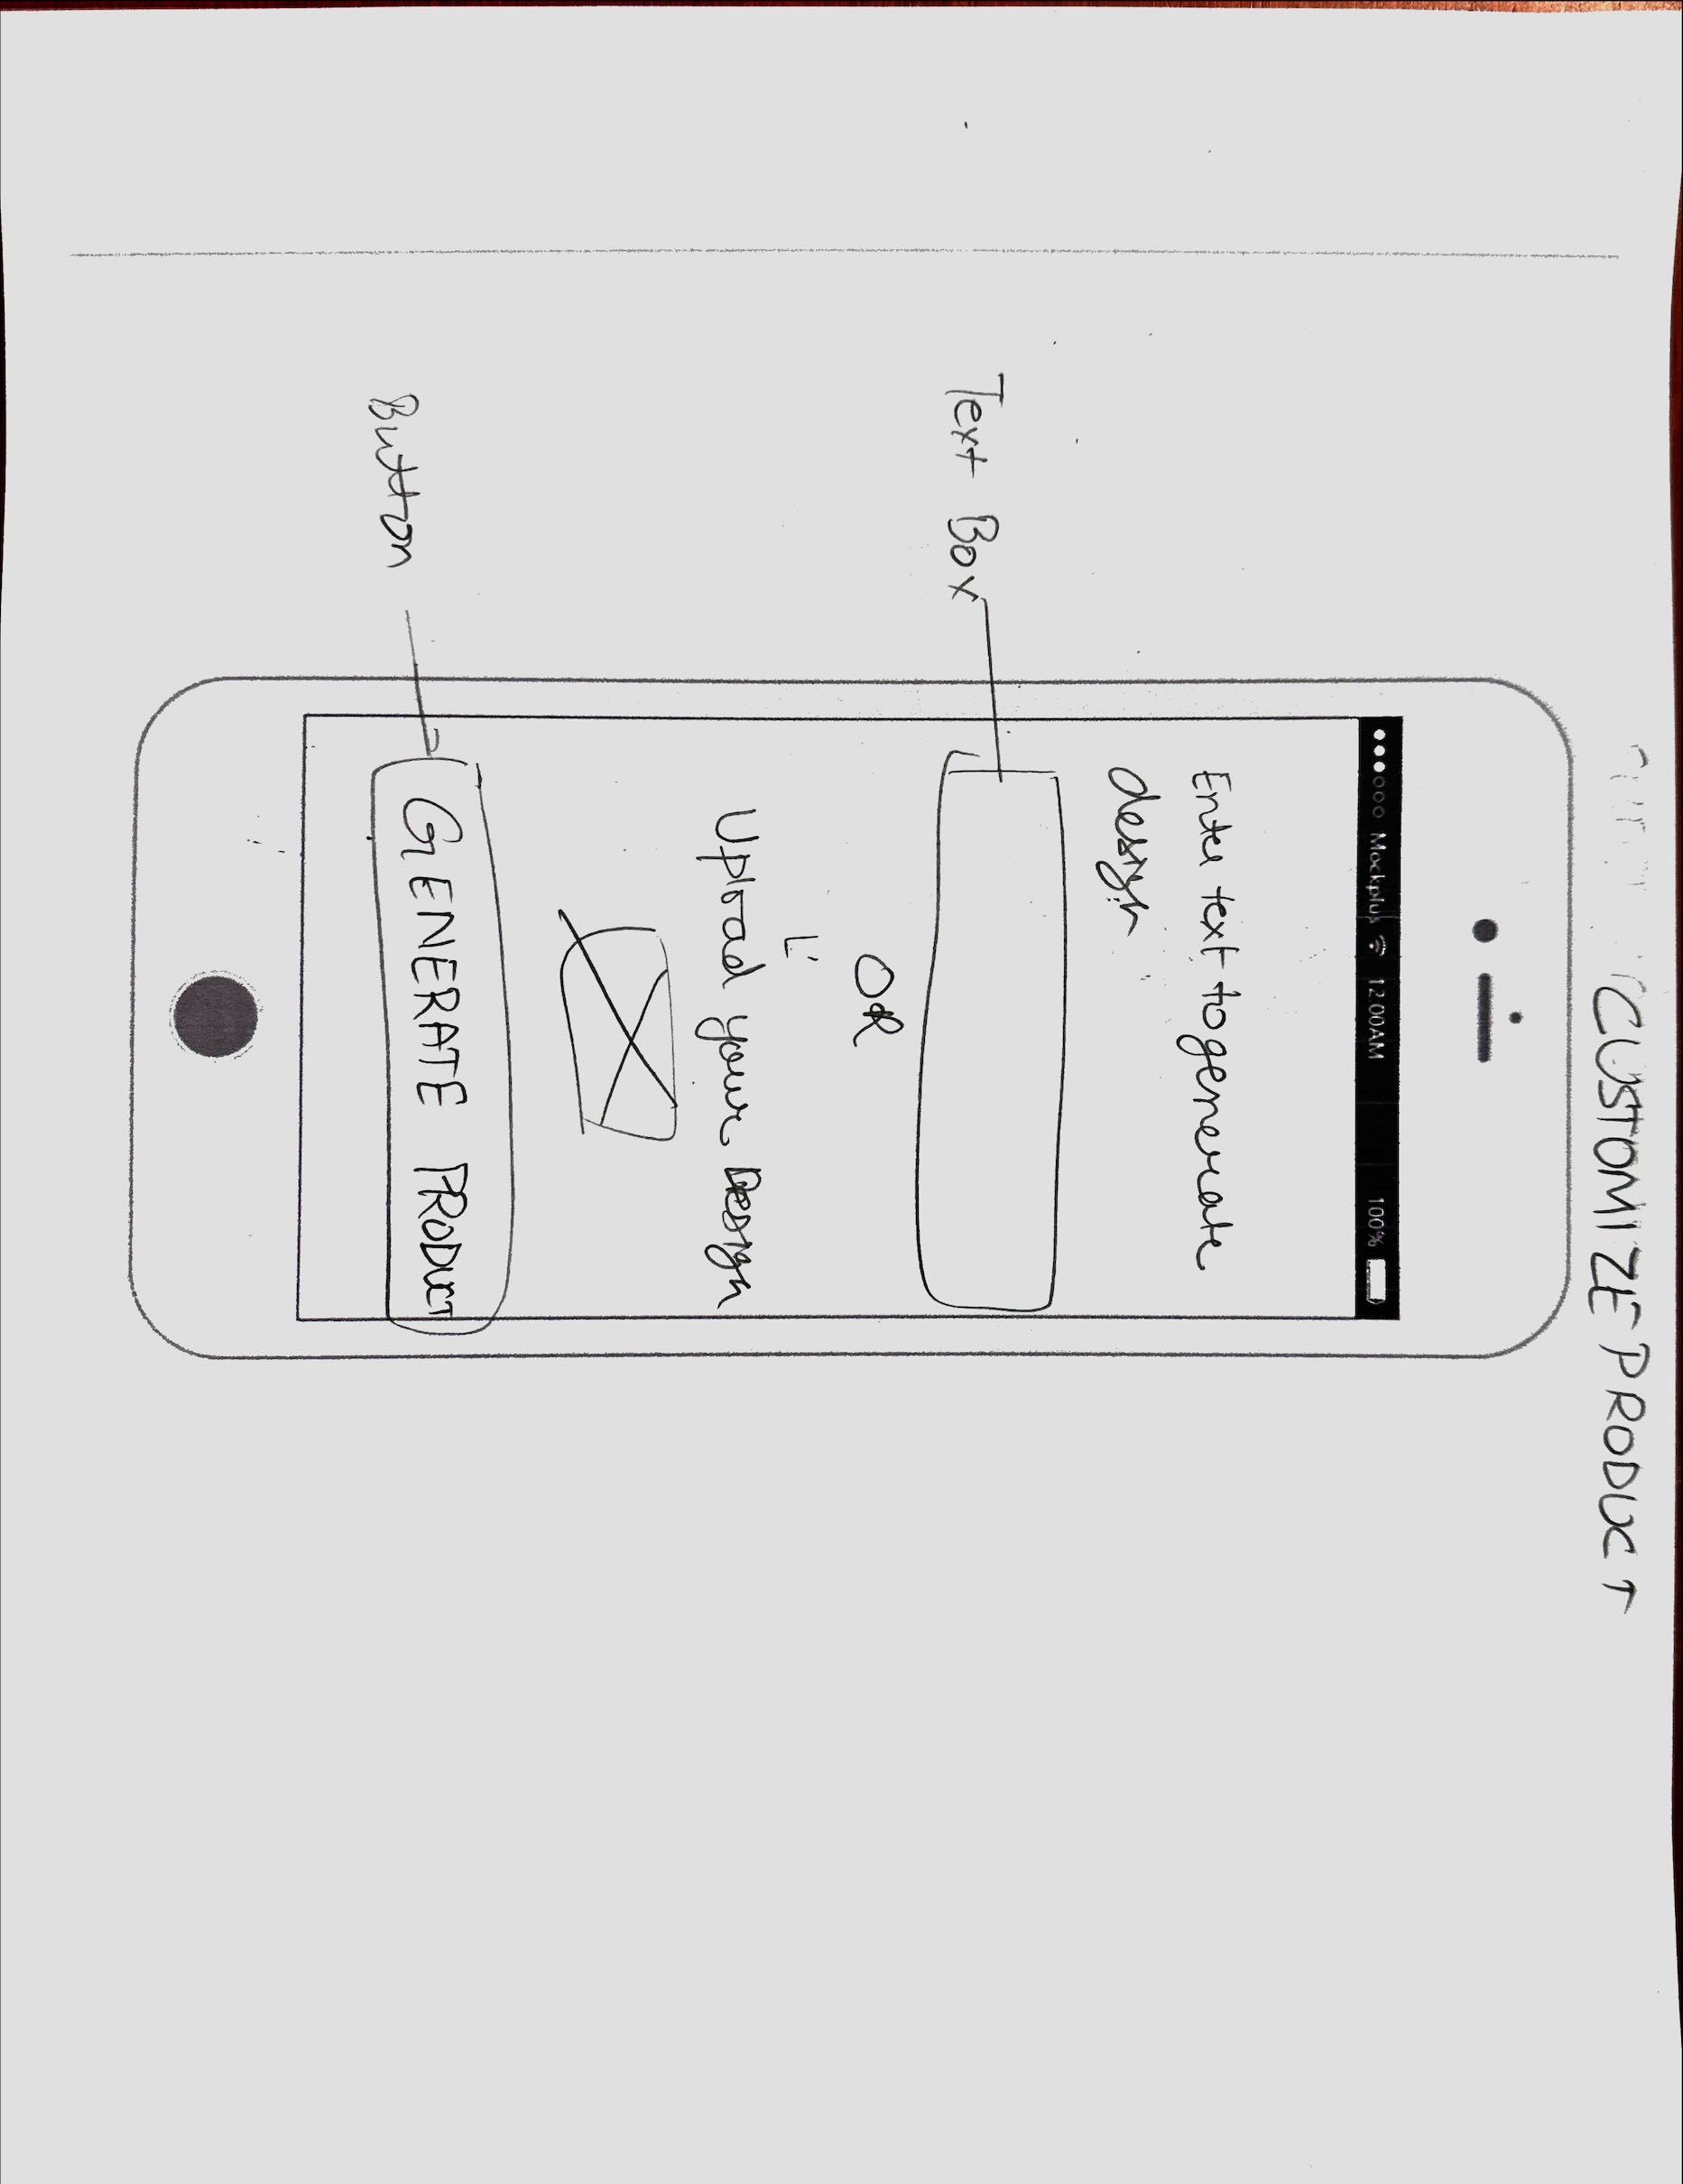 CUSTOMIZE PRODUCT
Mockplus 12.00AM 100%
Enter text to generate
design
Text Box
OR
Upload your Design
GENERATE PRODUCT
Button